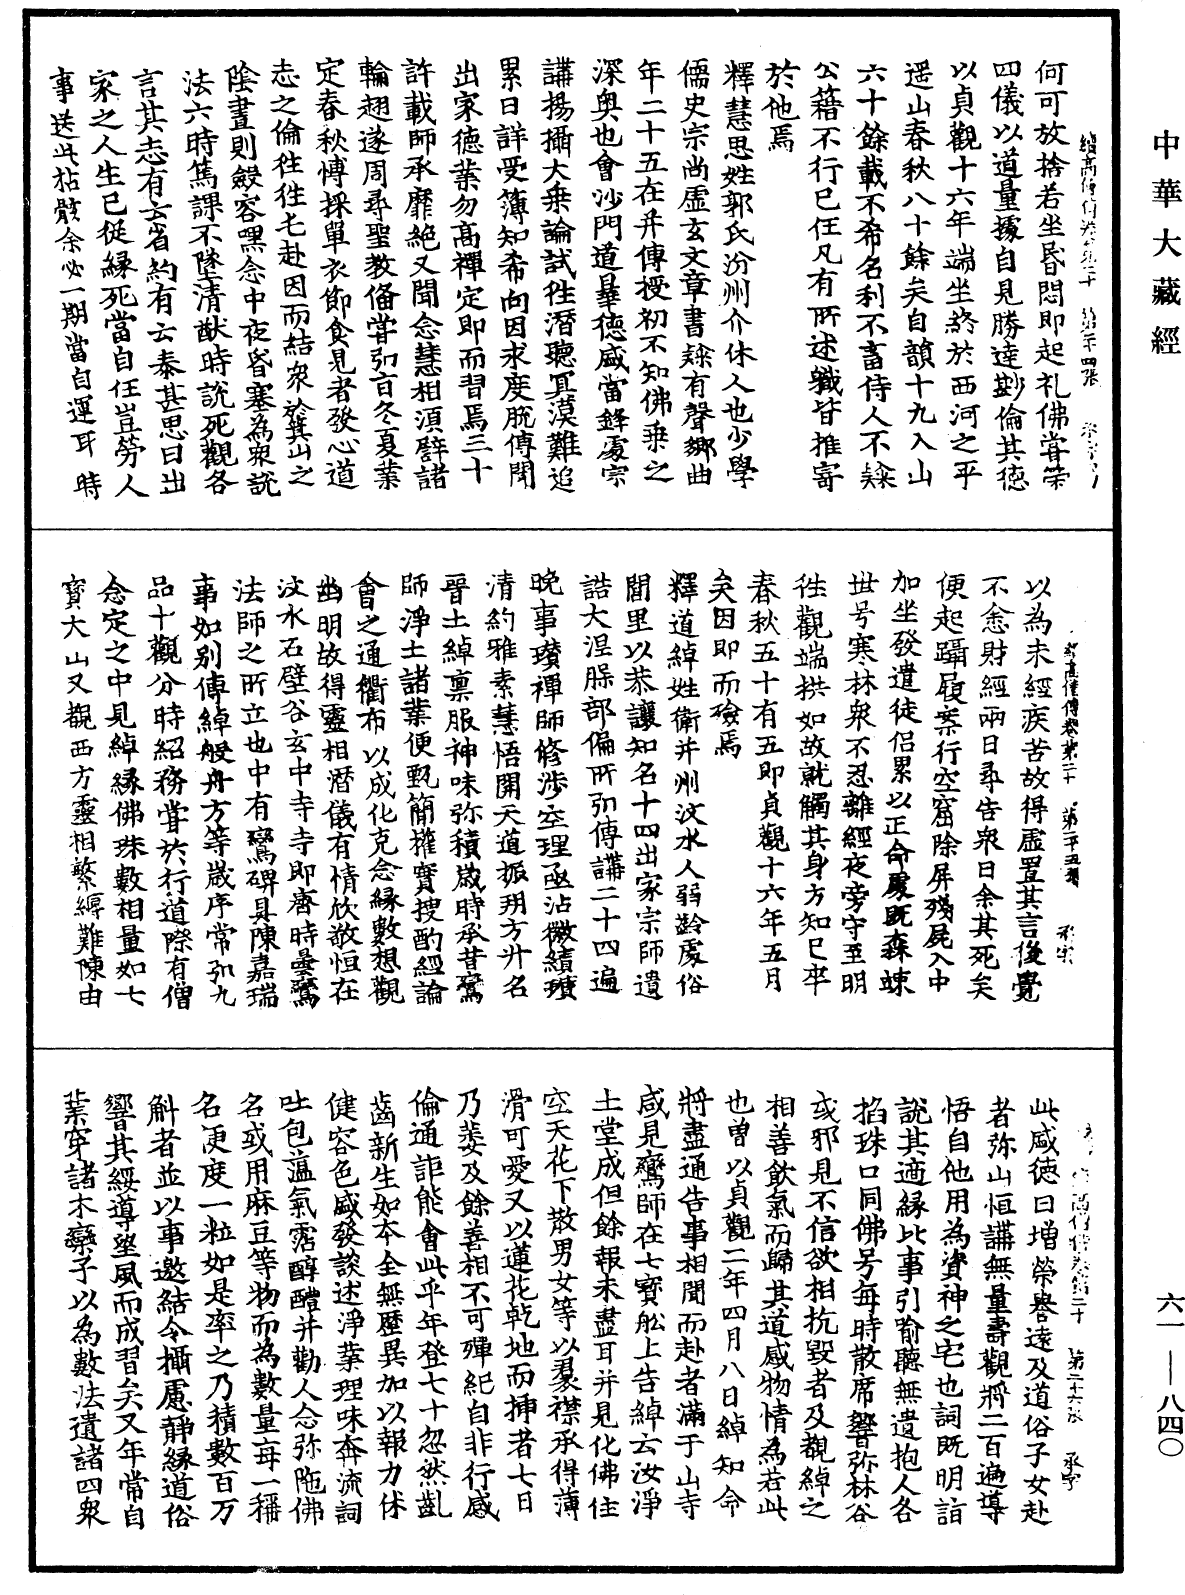 中華大藏經
何可放捨若坐昏悶即起礼佛嘗榮
四儀以道量據自見勝達尠倫其德
以貞觀十六年端坐終於西河之平
遥山春秋八十餘矣自韻十九入山
六十餘載不希名利不畜侍人不隸
公籍不行已任凡有所述職皆推寄
於他焉
釋慧思姓郭氏汾州介休人也少學
儒史宗尚虛玄文章書隸有聲鄉曲
年二十五在并傳授初不知佛乗之
深奥也會沙門道曻德盛當鋒處宗
講揚攝大乗論試徃潛聽冥漠難追
累日詳受薄知希向因求度脫傳聞
出家德業勿高禪定即而習焉三十
許載師承靡絶又聞念慧相須譬諸
輪翅遂周尋聖教備嘗弘旨冬夏業
定春秋愽採單衣節食見者發心道
志之倫徃徃屯赴因而結衆於龔山之
陰晝則斂容嘿念中夜昏塞為衆說
法六時篤課不墜清猷時說死觀各
言其志有云省約有云泰甚思曰出
家之人生已從縁死當自任豈勞人
事送此枯骸余必一期當自運耳 時
以為未經疾苦故得虛置其言後覺
不悆財經兩日尋告衆曰余其死矣
便起躡屐案行空窟除屏殘屍入中
加坐發遣徒侣累以正命處既森竦
世号寒林衆不忍離經夜旁守至明
徃觀端拱如故就觸其身方知已卒
春秋五十有五即貞觀十六年五月
矣因即而殮焉
釋道綽姓衛并州汶水人弱齡處俗
閭里以恭讓知名十四出家宗師遺
誥大涅躶部偏所弘傳講二十四遍
晚事瓉禪師修涉空理亟沾微績瓉
清約雅素慧悟開天道振朔方升名
晉土綽禀服神味弥積歲時承昔鸞
師淨土諸業便甄簡權實搜酌經論
會之通衢布以成化克念縁數想觀
幽明故得靈相潛儀有情欣敬恒在
汶水石壁谷玄中寺寺即齊時曇鸞
法師之所立也中有鸞碑具陳嘉瑞
事如别傳綽般舟方等歲序常弘九
品十觀分時紹務嘗於行道際有僧
念定之中見綽緣佛珠數相量如七
寳大山又覩西方靈相繁縟難陳由
此盛德日增榮譽遠及道俗子女赴
者弥山恒講無量壽觀將二百遍導
悟自他用為資神之宅也詞既明詣
說其適縁比事引喻聽無遺抱人各
掐珠口同佛号每時散席響弥林谷
或邪見不信欲相抗毀者及覩綽之
相善飲氣而歸其道感物情為若此
也曽以貞觀二年四月八日綽知命
將盡通告事相聞而赴者滿于山寺
咸見鸞師在七寳舩上告綽云汝淨
土堂成但餘報未盡耳并見化佛住
空天花下散男女等以裙襟承得薄
滑可愛又以蓮花乾地而插者七日
乃萎及餘善相不可殫紀自非行感
倫通詎能會此乎年登七十忽然齓
齒新生如本全無歷異加以報力休
健容色盛發談述淨業理味奔流詞
吐包蘊氣霑醇醴并勸人念弥陁佛
名或用麻豆等物而為數量每一稱
名便度一粒如是率之乃積數百万
斛者並以事邀結令攝慮靜縁道俗
響其綏導望風而成習矣又年常自
業穿諸木欒子以為數法遺諸四衆
六一——八四〇